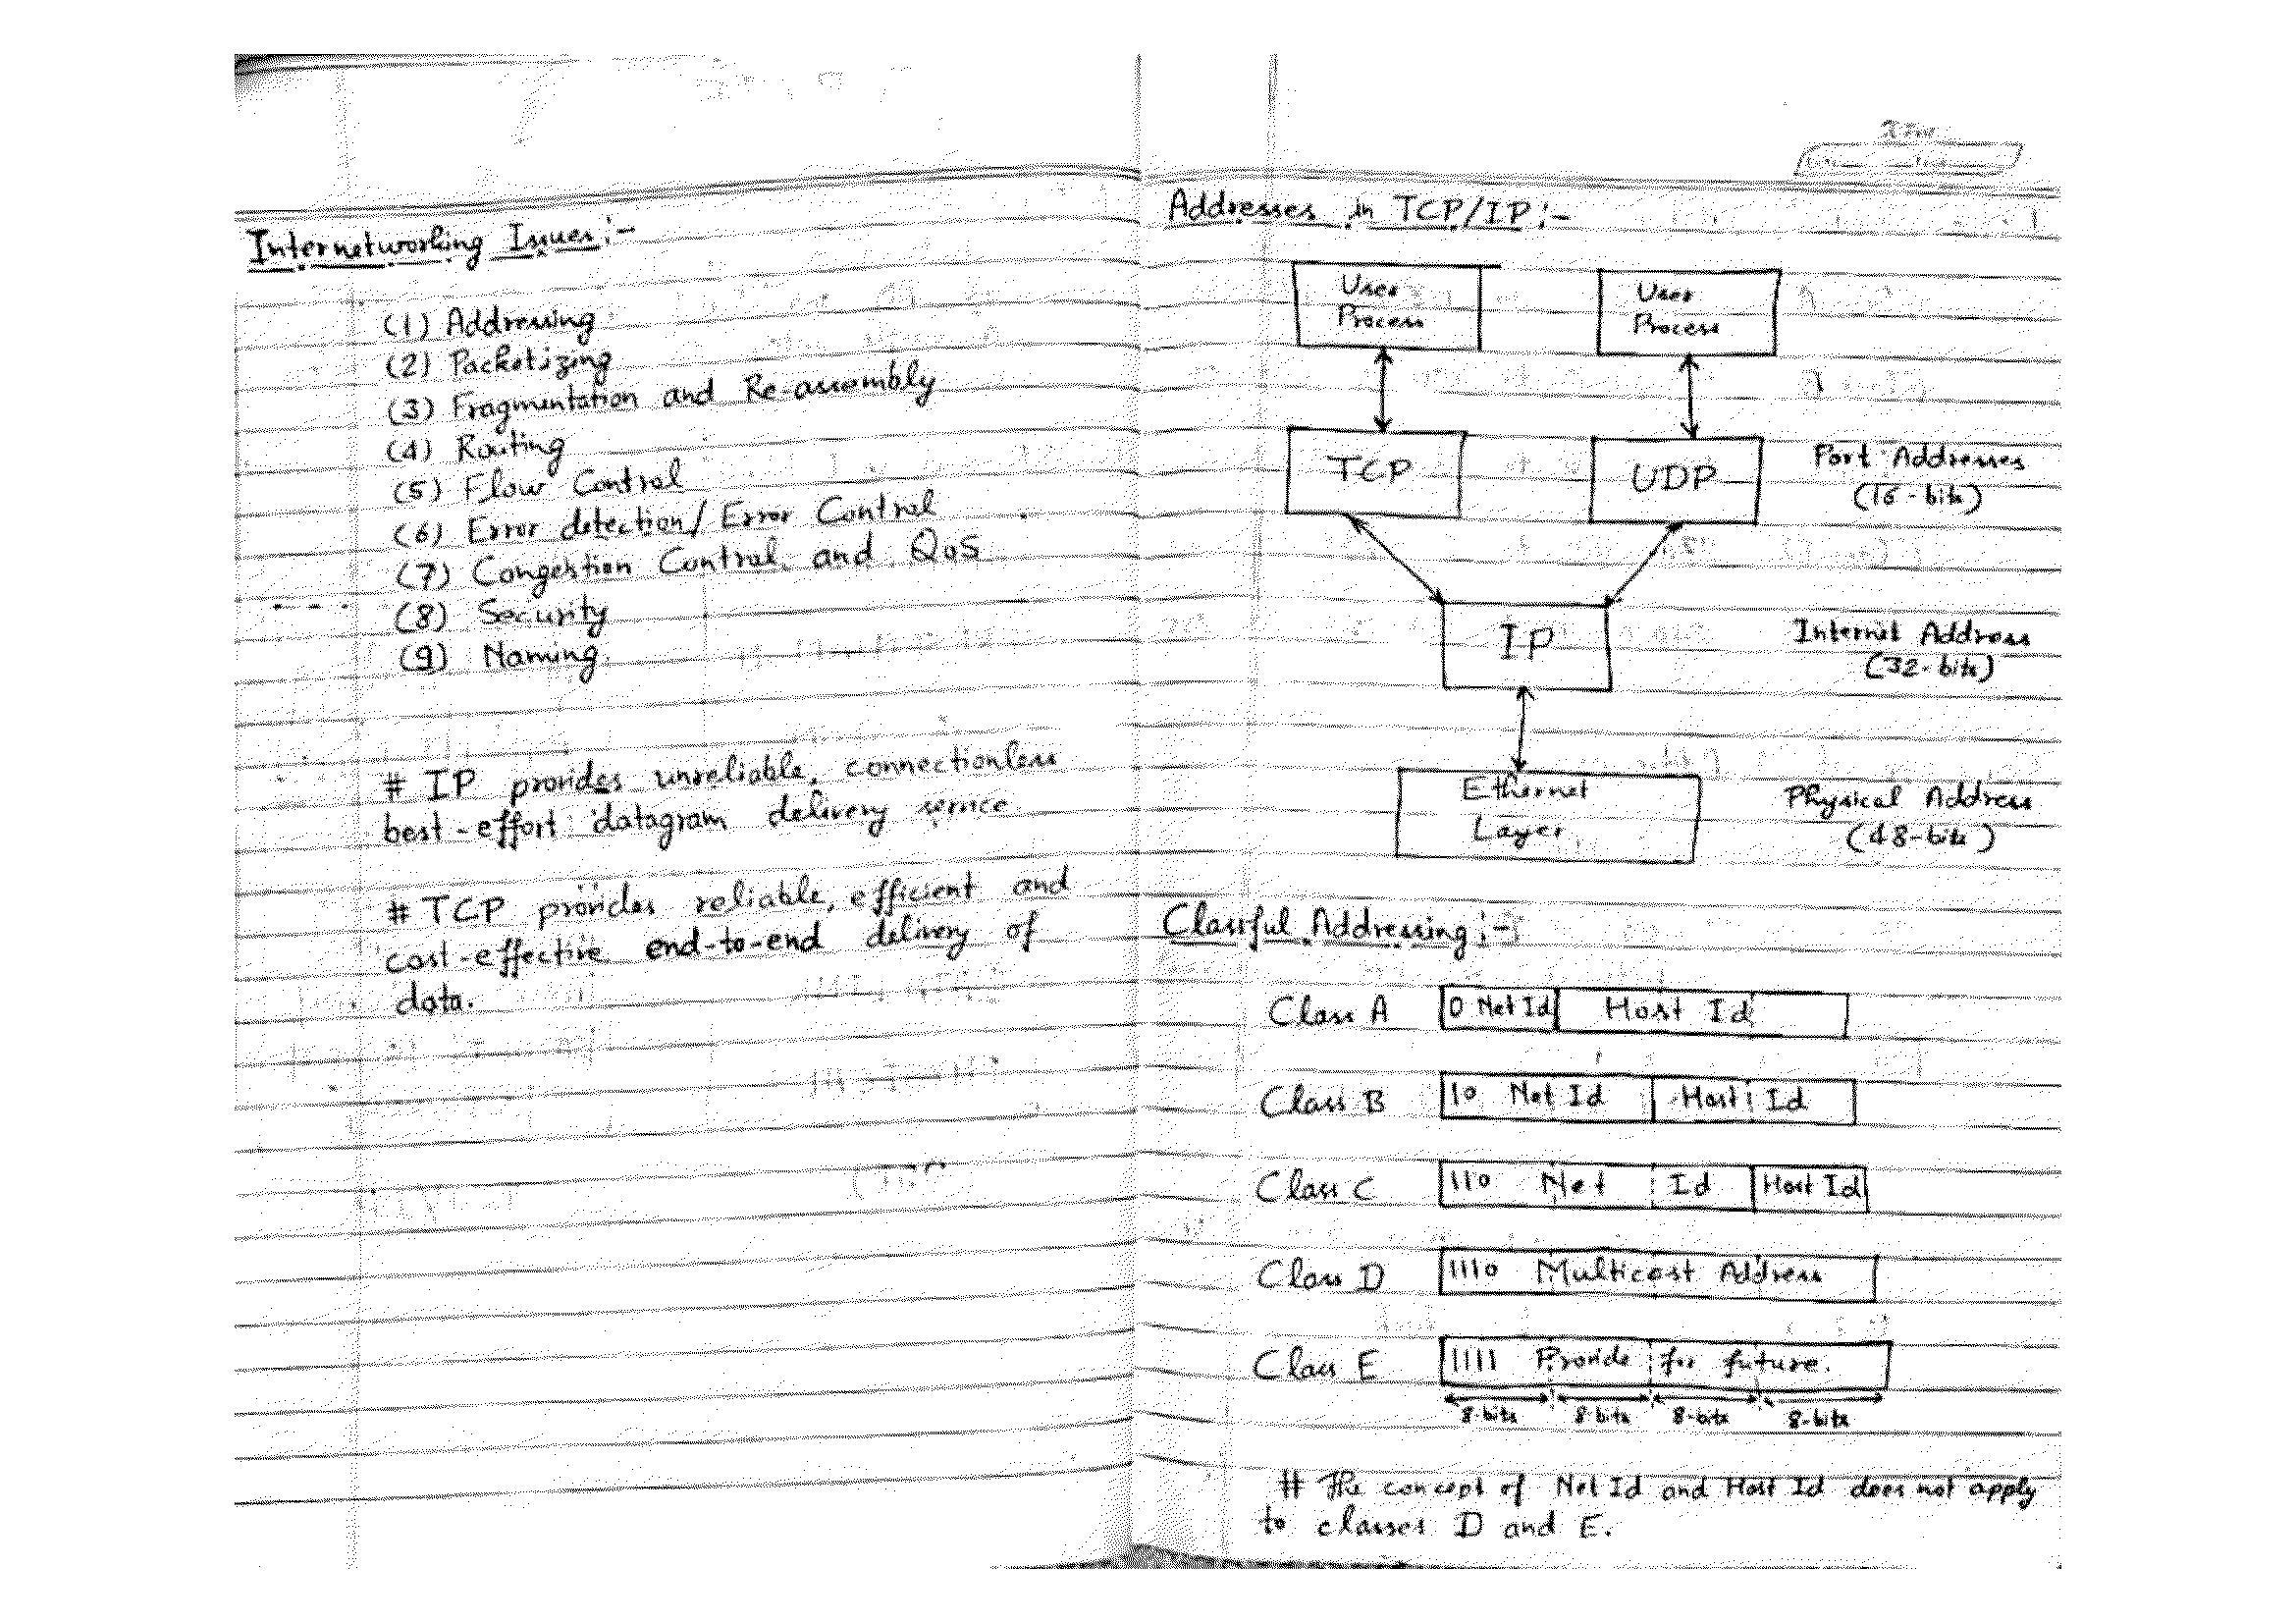 Internetworking Issues:-
(1) Addressing
(2) Packetizing
(3) Fragmentation and Re-assembly
(4) Routing
(5) Flow Control
(6) Error detection/ Error Control
(7) Congestion Control and QoS
(8) Security
(9) Naming.
# IP provides unreliable, connectionless
best-effort datagram delivery service
# TCP provides reliable, efficient and
cost-effective end-to-end delivery of
data.
Addresses in TCP/IP:-
User Process
User Process
TCP
UDP
Port Addresses
(16-bits)
IP
Internet Address
(32-bits)
Ethernet
Layer
Physical Address
(48-bits)
Classful Addressing:-
Class A 0 Net Id Host Id
Class B 10 Net Id Host Id
Class C 110 Net Id Host Id
Class D 1110 Multicast Address
Class E 1111 Provide for future.
8-bits 8-bits 8-bits 8-bits
# The concept of Net Id and Host Id does not apply
to classes D and E.